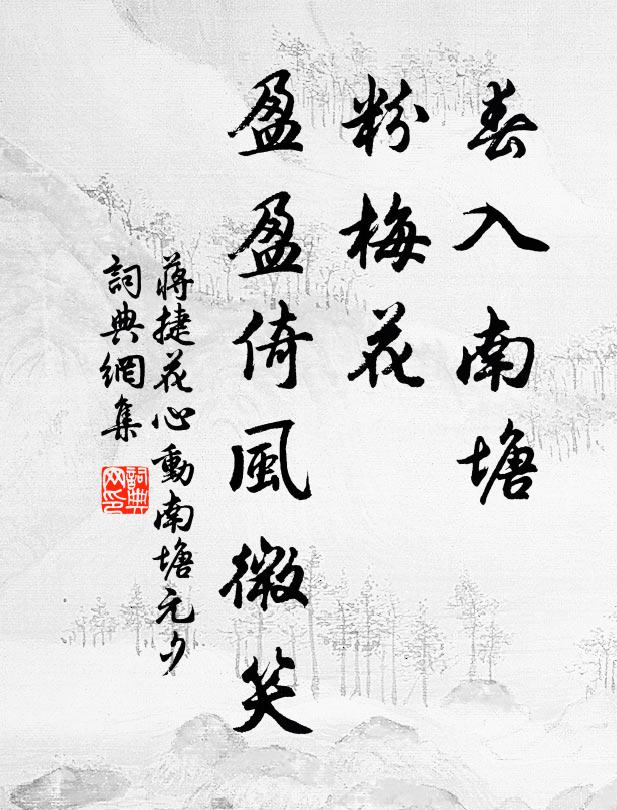 春入南塘
粉梅花
盈盈倚風微笑
蔣捷花心動南塘元夕
詞典網集
詞典網印